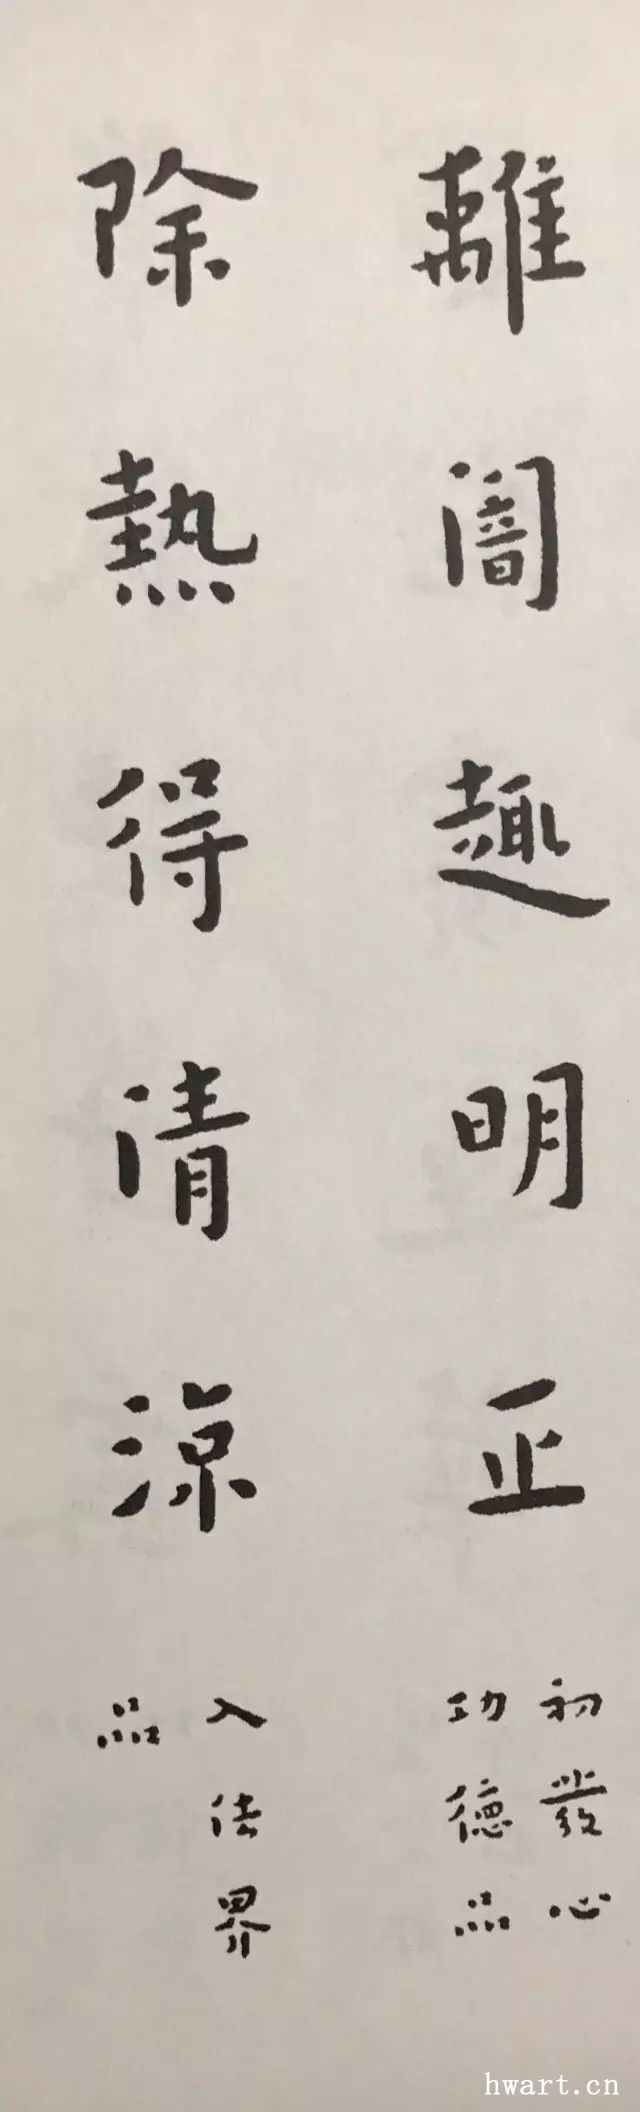 離闇趣明正
初發心
功德品
除熱得清涼
入法界
品
hwart.cn